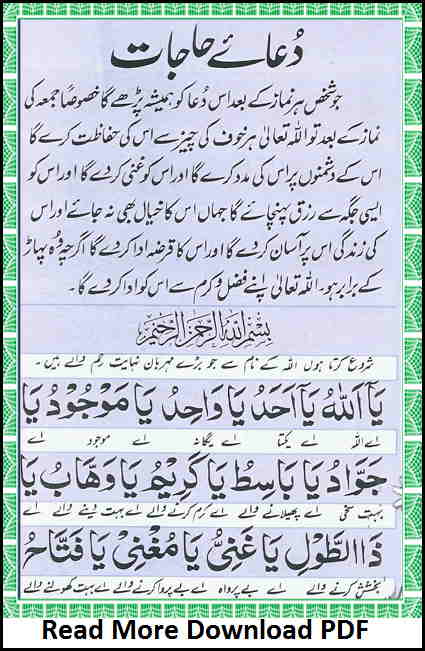 دُعائے حاجات
جو شخص ہر نماز کے بعد اس دُعا کو ہمیشہ پڑھے گا خصوصًا جمعہ کی
نماز کے بعد تو اللہ تعالیٰ ہر خوف کی چیز سے اس کی حفاظت کرے گا
اس کے دشمنوں پر اس کی مدد کرے گا اور اس کو غنی کر دے گا اور اس کو
ایسی جگہ سے رزق پہنچائے گا جہاں اس کا خیال بھی نہ جائے اور اس
کی زندگی اس پر آسان کر دے گا اور اس کا قرضہ ادا کر دے گا اگرچہ وُہ پہاڑ
کے برابر ہو۔ اللہ تعالیٰ اپنے فضل و کرم سے اس کو ادا کر دے گا۔
بِسْمِ اللهِ الرَّحْمٰنِ الرَّحِيْمِ
شروع کرتا ہوں اللہ کے نام سے جو بڑے مہربان نہایت رحم والے ہیں۔
يَآ اَللّٰهُ يَآ اَحَدُ يَا وَاحِدُ يَا مَوْجُوْدُ يَا
اے اللہ اے یکتا اے یگانہ اے موجود اے
جَوَّادُ يَا بَاسِطُ يَا كَرِيْمُ يَا وَهَّابُ يَا
بہت سخی اے پھیلانے والے اے کرم کرنے والے اے بہت دینے والے اے
ذَا الطَّوْلِ يَا غَنِيُّ يَا مُغْنِيْ يَا فَتَّاحُ
بخشش کرنے والے اے بے پرواہ اے بے پروا کرنے والے اے بہت کھولنے والے
Read More Download PDF